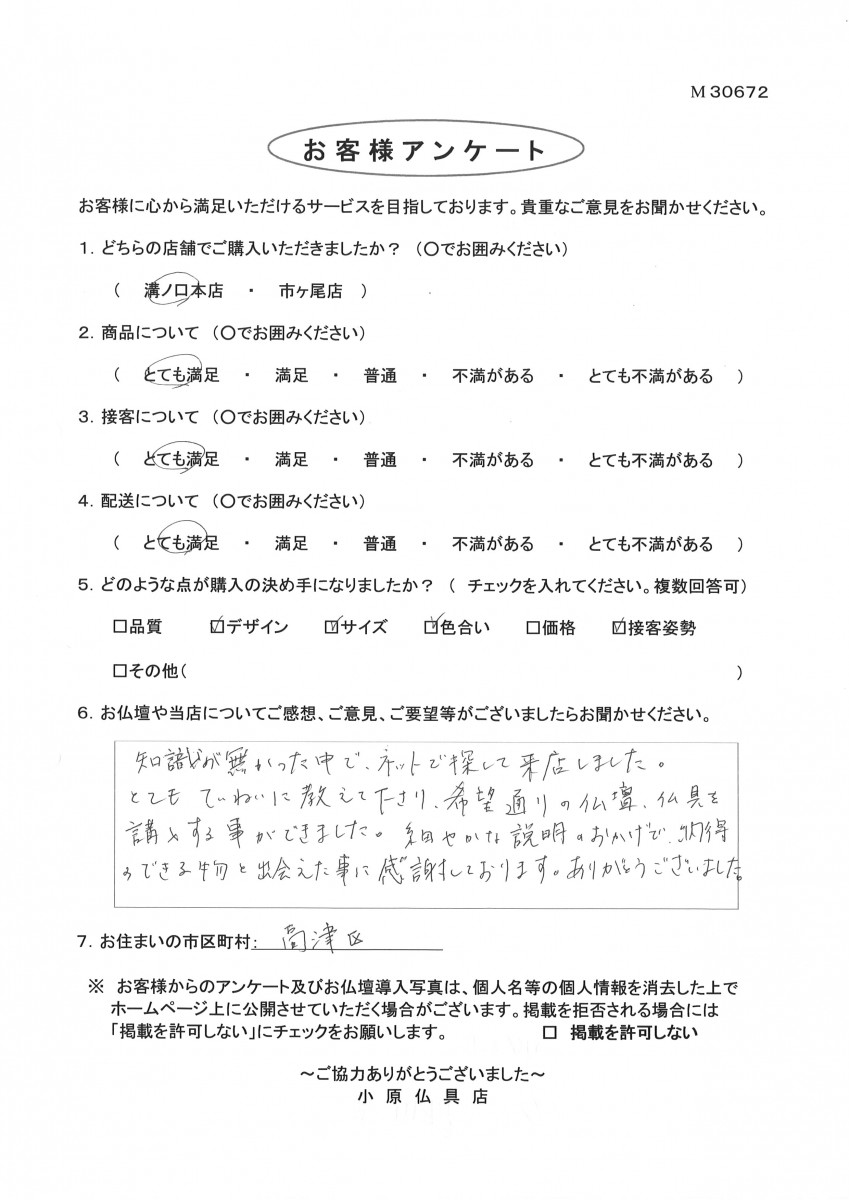 M30672
お客様アンケート
お客様に心から満足いただけるサービスを目指しております。貴重なご意見をお聞かせください。
1．どちらの店舗でご購入いただきましたか？（〇でお囲みください）
（ 溝ノ口本店 ・ 市ヶ尾店 ）
2．商品について（〇でお囲みください）
（ とても満足 ・ 満足 ・ 普通 ・ 不満がある ・ とても不満がある ）
3．接客について（〇でお囲みください）
（ とても満足 ・ 満足 ・ 普通 ・ 不満がある ・ とても不満がある ）
4．配送について（〇でお囲みください）
（ とても満足 ・ 満足 ・ 普通 ・ 不満がある ・ とても不満がある ）
5．どのような点が購入の決め手になりましたか？（ チェックを入れてください。複数回答可）
□品質 ☑デザイン ☑サイズ ☑色合い □価格 ☑接客姿勢
□その他( )
6．お仏壇や当店についてご感想、ご意見、ご要望等がございましたらお聞かせください。
知識が無かった中で、ネットで探して来店しました。
とても ていねいに教えて下さり、希望通りの仏壇、仏具を
購入する事ができました。細やかな説明のおかげで、納得
のできる物と出会えた事に感謝しております。ありがとうございました。
7．お住まいの市区町村： 高津区
※ お客様からのアンケート及びお仏壇導入写真は、個人名等の個人情報を消去した上で
ホームページ上に公開させていただく場合がございます。掲載を拒否される場合には
「掲載を許可しない」にチェックをお願いします。 □ 掲載を許可しない
～ご協力ありがとうございました～
小原仏具店